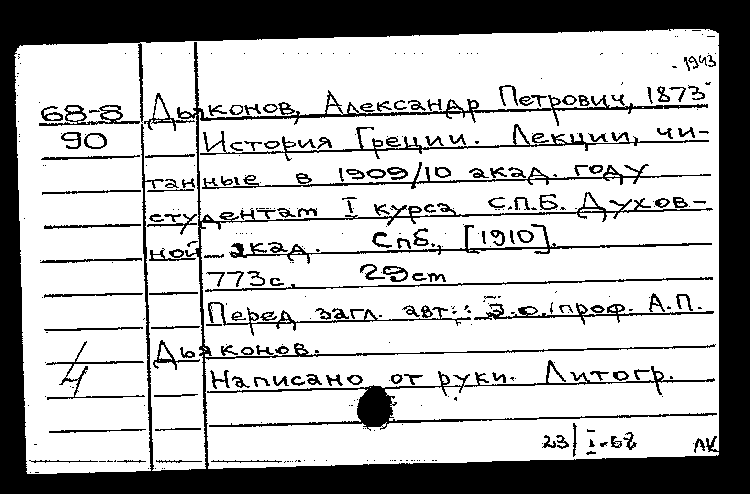 - 1943
68-8 Дьяконов, Александр Петрович, 1873-
90 История Греции. Лекции, чи-
танные в 1909/10 акад. году
студентам I курса С.П.Б. Духов-
ной акад. Спб., [1910].
773с. 29ст
Перед загл. авт.: Э.о. проф. А.П.
Дьяконов.
4 Написано от руки. Литогр.
23/I-68 ЛК